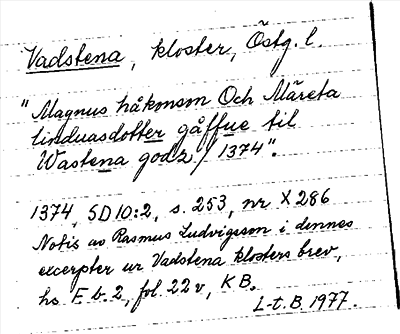 Vadstena, kloster, Östg. l.
"Magnus håkonson Och Märeta
linduasdotter gåffue til
Wastena godz / 1374".
1374, SD 10:2, s. 253, nr X 286
Notis av Rasmus Ludvigsson i dennes
excerpter ur Vadstena klosters brev,
hs E b. 2, fol. 22 v, KB.
L-t. B. 1977.